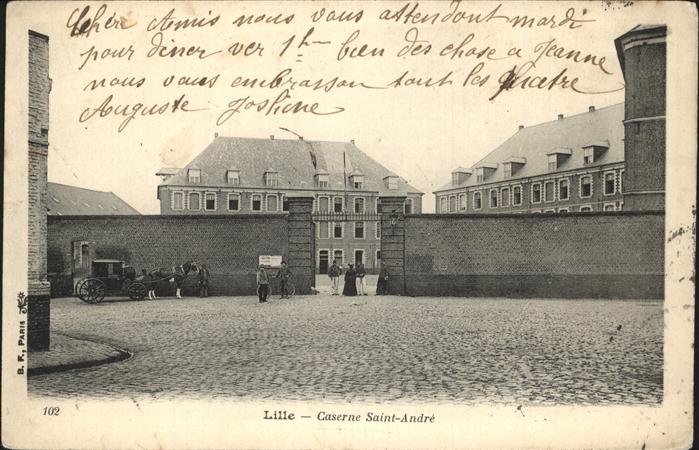 Chere Amis nous vous attendont mardi
pour diner ver 1h bien des chose a Jeanne
nous vous embrasson tout les quatre
Auguste Josline
B. F., PARIS
102
Lille — Caserne Saint-André